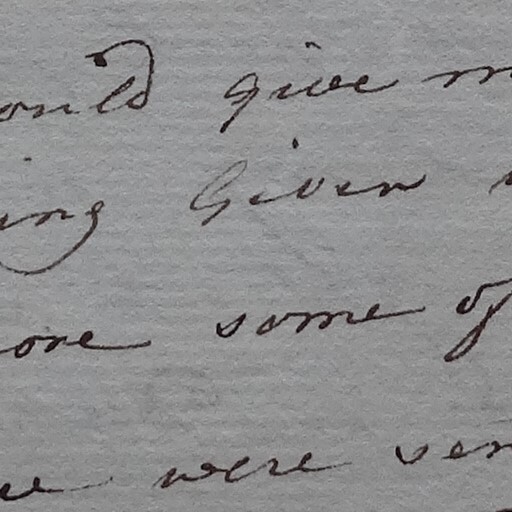 ould give m
ing Given
ore some of
were ver